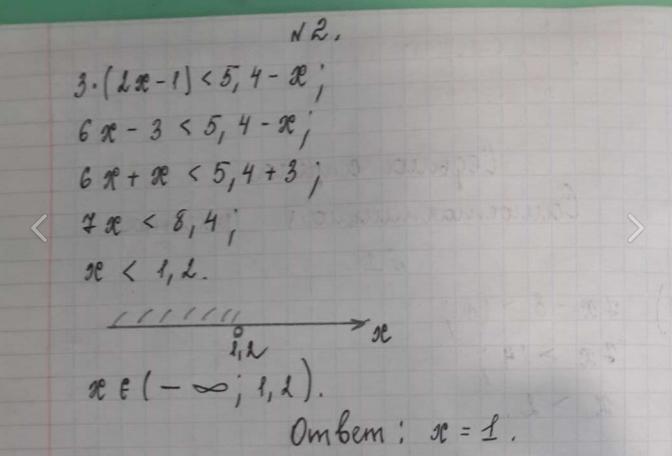 №2.
3·(2x-1)<5,4-x;
6x-3<5,4-x;
6x+x<5,4+3;
7x<8,4;
x<1,2.
1,2
x
x∈(-∞; 1,2).
Ответ: x=1.